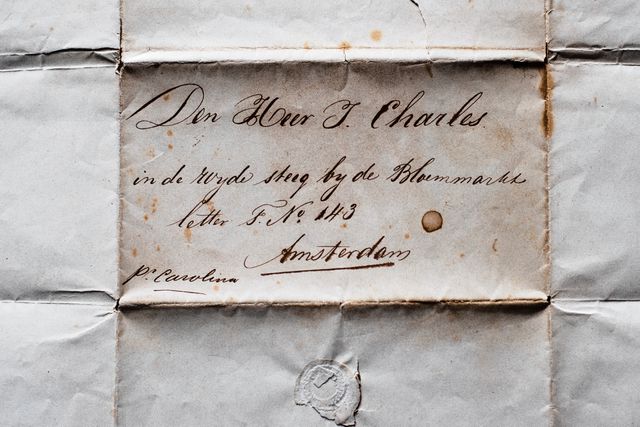 Den Heer T. Charles.
in de Wyde steeg by de Bloemmarkt
letter F. No. 143
Amsterdam
pr. Carolina